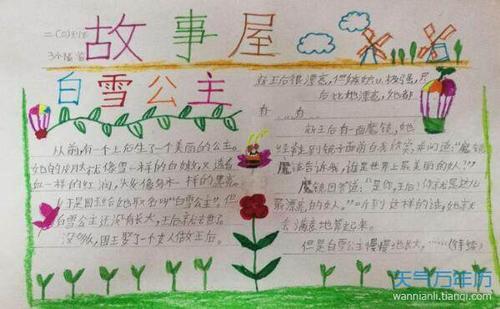 故事屋
白雪公主
从前,有一个王后生了一个美丽的公主。
她的皮肤就像雪一样的白嫩,又透着
血一样的红润,头发像乌木一样的黑亮。
于是国王给她取名叫"白雪公主",但
白雪公主还没有长大,王后就去世了
没多久,国王娶了一个女人做王后。
新王后很漂亮,但
后比她漂亮,她都
新王后有一面魔镜,她
经常到镜子面前自我欣赏,并问道:"魔
魔镜告诉我,谁是世界上最美丽的女人?"
魔镜回答道:"是你,王后!你就是这儿
最漂亮的女人。"听到这样的话,她就
去满意地笑起来。
但是白雪公主慢慢地长大,……(待续)
天气万年历
wannianli.tianqi.com